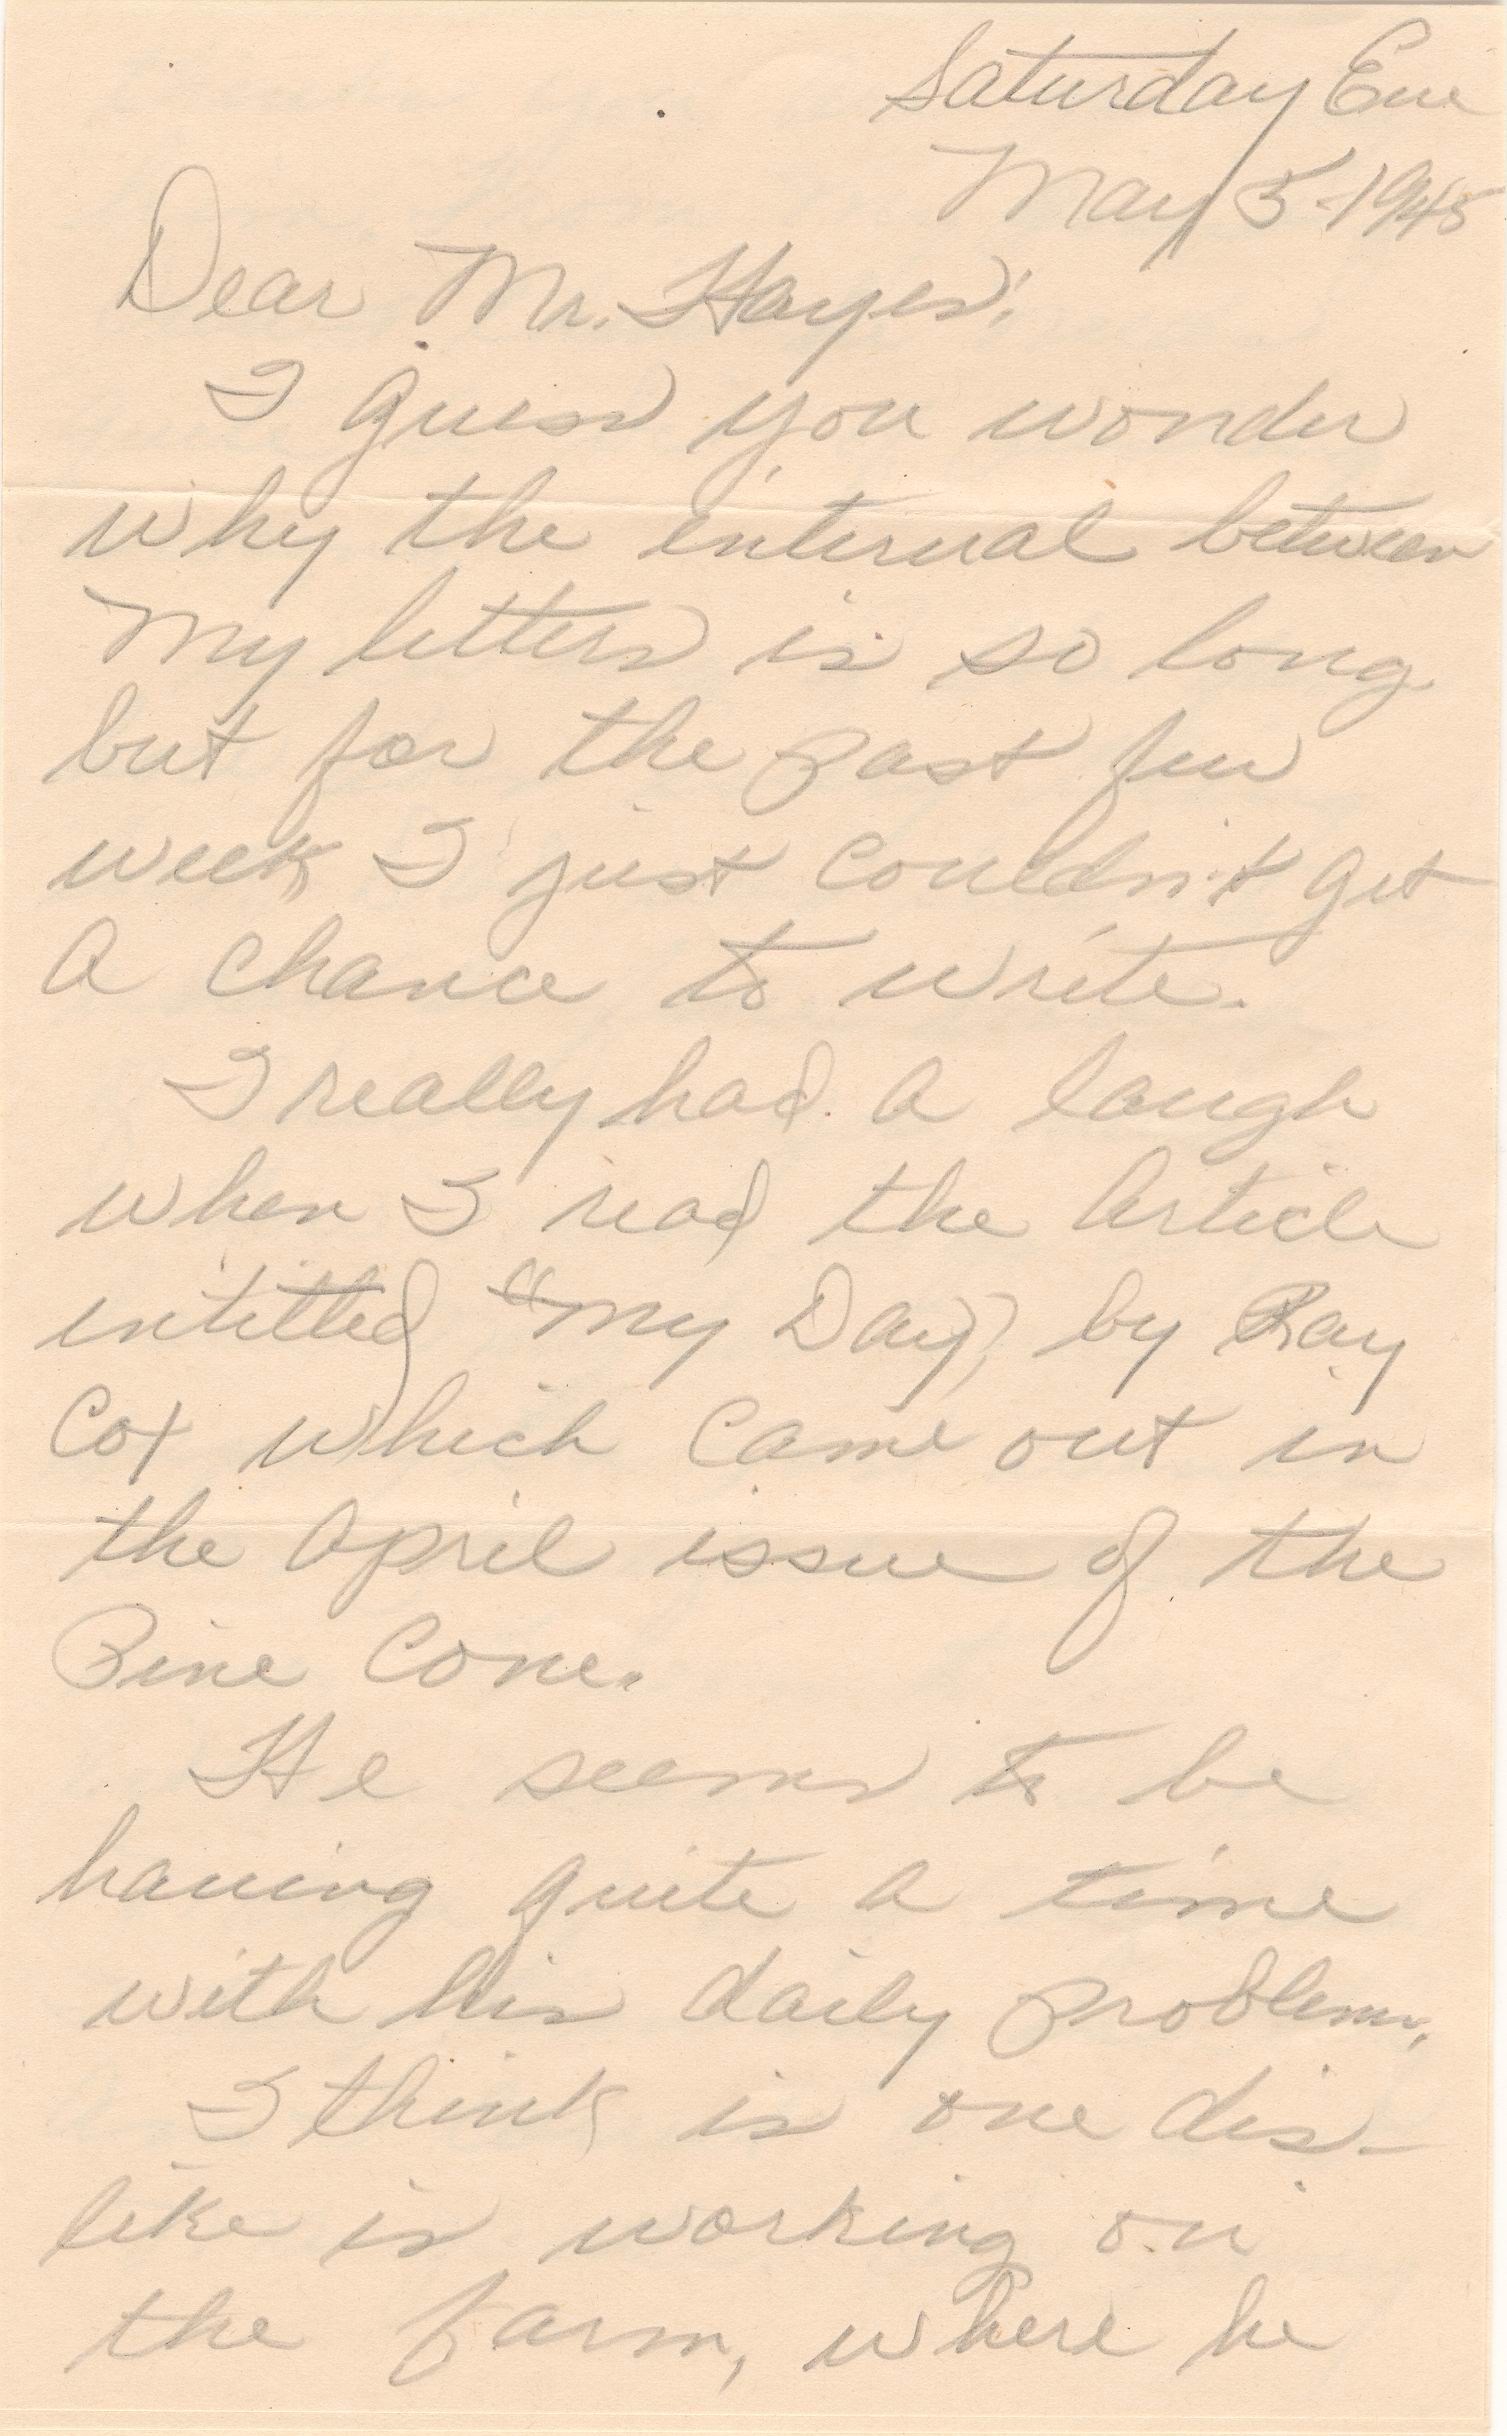 Saturday Eve
May 5-1945
Dear Mr. Hayes:
I guess you wonder
why the interval between
My letters is so long
but for the past few
week I just couldn't get
a chance to write.
I really had a laugh
when I read the article
intitled "My Day", by Ray
Cox which came out in
the April issue of the
Pine Cone.
He seems to be
having quite a time
with his daily problems.
I think is one dis-
like is working on
the farm, where he